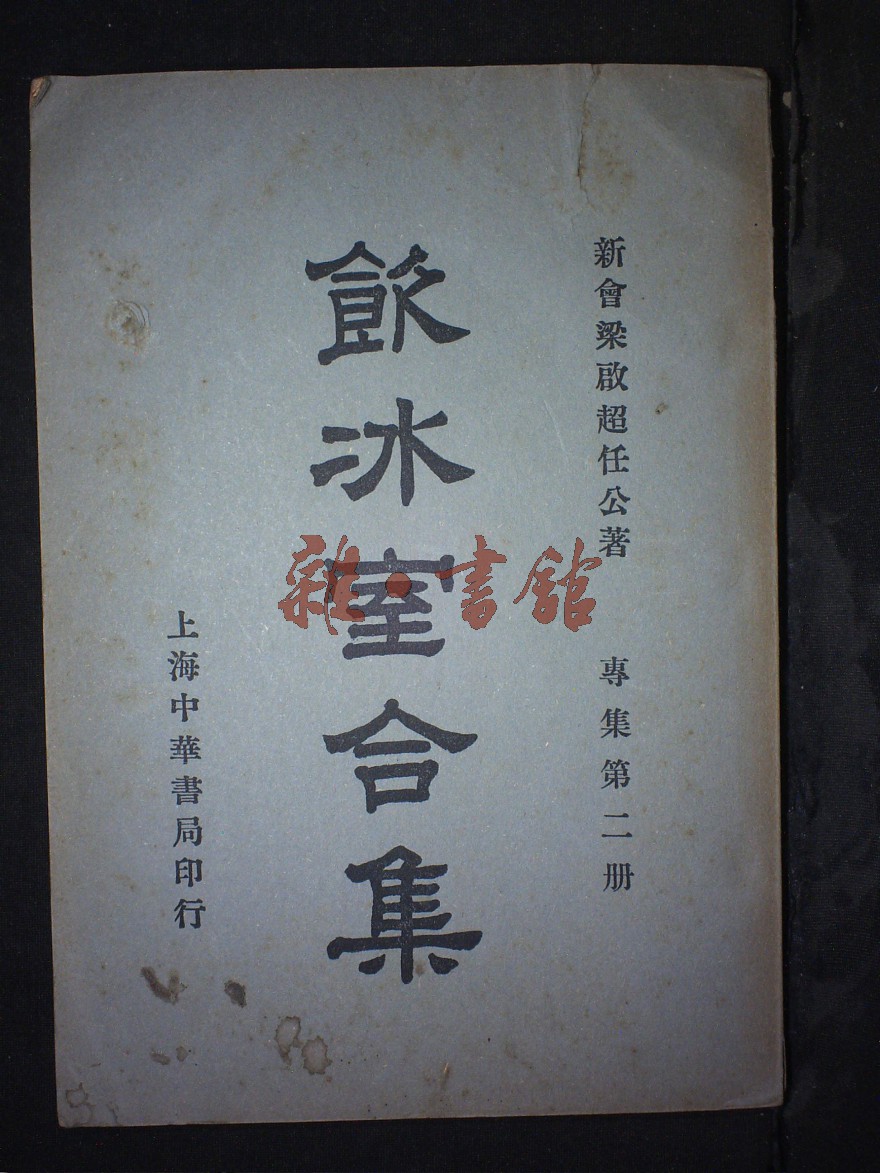 新會梁啟超任公著
專集第二册
飲冰室合集
上海中華書局印行
雜·書館